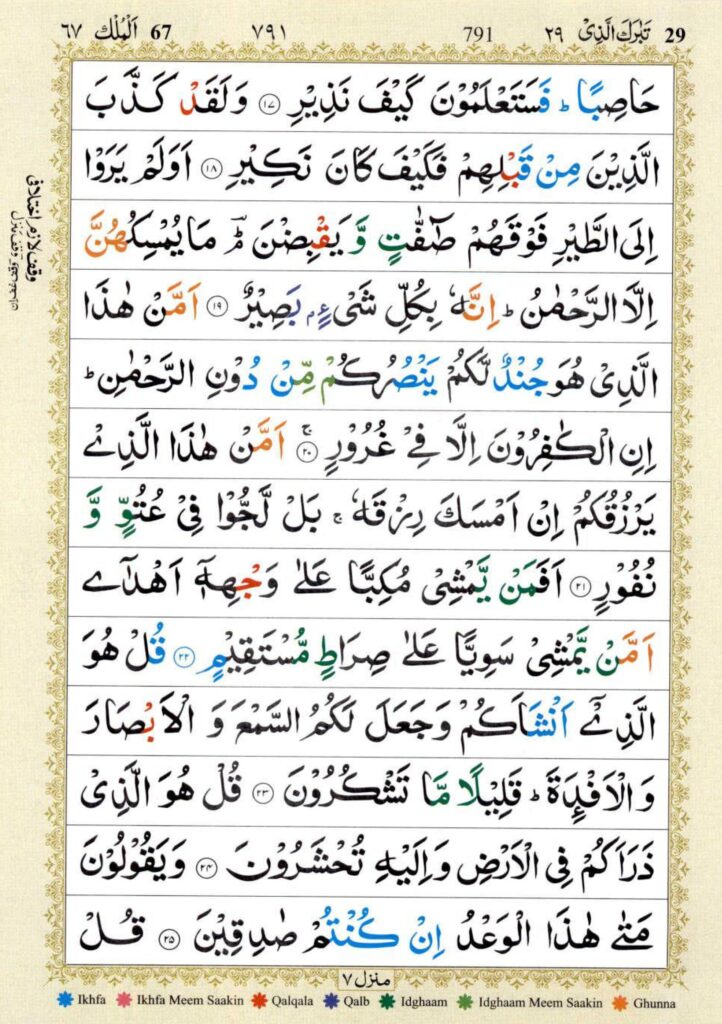 29 تَبٰرَكَ الَّذِیْ ٢٩ 791 ٧٩١ 67 اَلْمُلْك ٦٧
حَاصِبًا ؕ فَسَتَعْلَمُوْنَ كَیْفَ نَذِیْرِ ﴿١٧﴾ وَلَقَدْ كَذَّبَ
الَّذِیْنَ مِنْ قَبْلِهِمْ فَكَیْفَ كَانَ نَكِیْرِ ﴿١٨﴾ اَوَلَمْ یَرَوْا
اِلَی الطَّیْرِ فَوْقَهُمْ صٰٓفّٰتٍ وَّ یَقْبِضْنَ ؔۘ مَا یُمْسِكُهُنَّ
اِلَّا الرَّحْمٰنُ ؕ اِنَّهٗ بِكُلِّ شَیْءٍۭ بَصِیْرٌ ﴿١٩﴾ اَمَّنْ هٰذَا
الَّذِیْ هُوَ جُنْدٌ لَّكُمْ یَنْصُرُكُمْ مِّنْ دُوْنِ الرَّحْمٰنِ ؕ
اِنِ الْكٰفِرُوْنَ اِلَّا فِیْ غُرُوْرٍ ۚ﴿٢٠﴾ اَمَّنْ هٰذَا الَّذِیْ
یَرْزُقُكُمْ اِنْ اَمْسَكَ رِزْقَهٗ ۚ بَلْ لَّجُّوْا فِیْ عُتُوٍّ وَّ
نُفُوْرٍ ﴿٢١﴾ اَفَمَنْ یَّمْشِیْ مُكِبًّا عَلٰی وَجْهِهٖۤ اَهْدٰۤی
اَمَّنْ یَّمْشِیْ سَوِیًّا عَلٰی صِرَاطٍ مُّسْتَقِیْمٍ ﴿٢٢﴾ قُلْ هُوَ
الَّذِیْۤ اَنْشَاَكُمْ وَجَعَلَ لَكُمُ السَّمْعَ وَ الْاَبْصَارَ
وَ الْاَفْـِٕدَةَ ؕ قَلِیْلًا مَّا تَشْكُرُوْنَ ﴿٢٣﴾ قُلْ هُوَ الَّذِیْ
ذَرَاَكُمْ فِی الْاَرْضِ وَاِلَیْهِ تُحْشَرُوْنَ ﴿٢٤﴾ وَیَقُوْلُوْنَ
مَتٰی هٰذَا الْوَعْدُ اِنْ كُنْتُمْ صٰدِقِیْنَ ﴿٢٥﴾ قُلْ
وقف لازم اختلافی
منزل ٧
Ikhfa Ikhfa Meem Saakin Qalqala Qalb Idghaam Idghaam Meem Saakin Ghunna